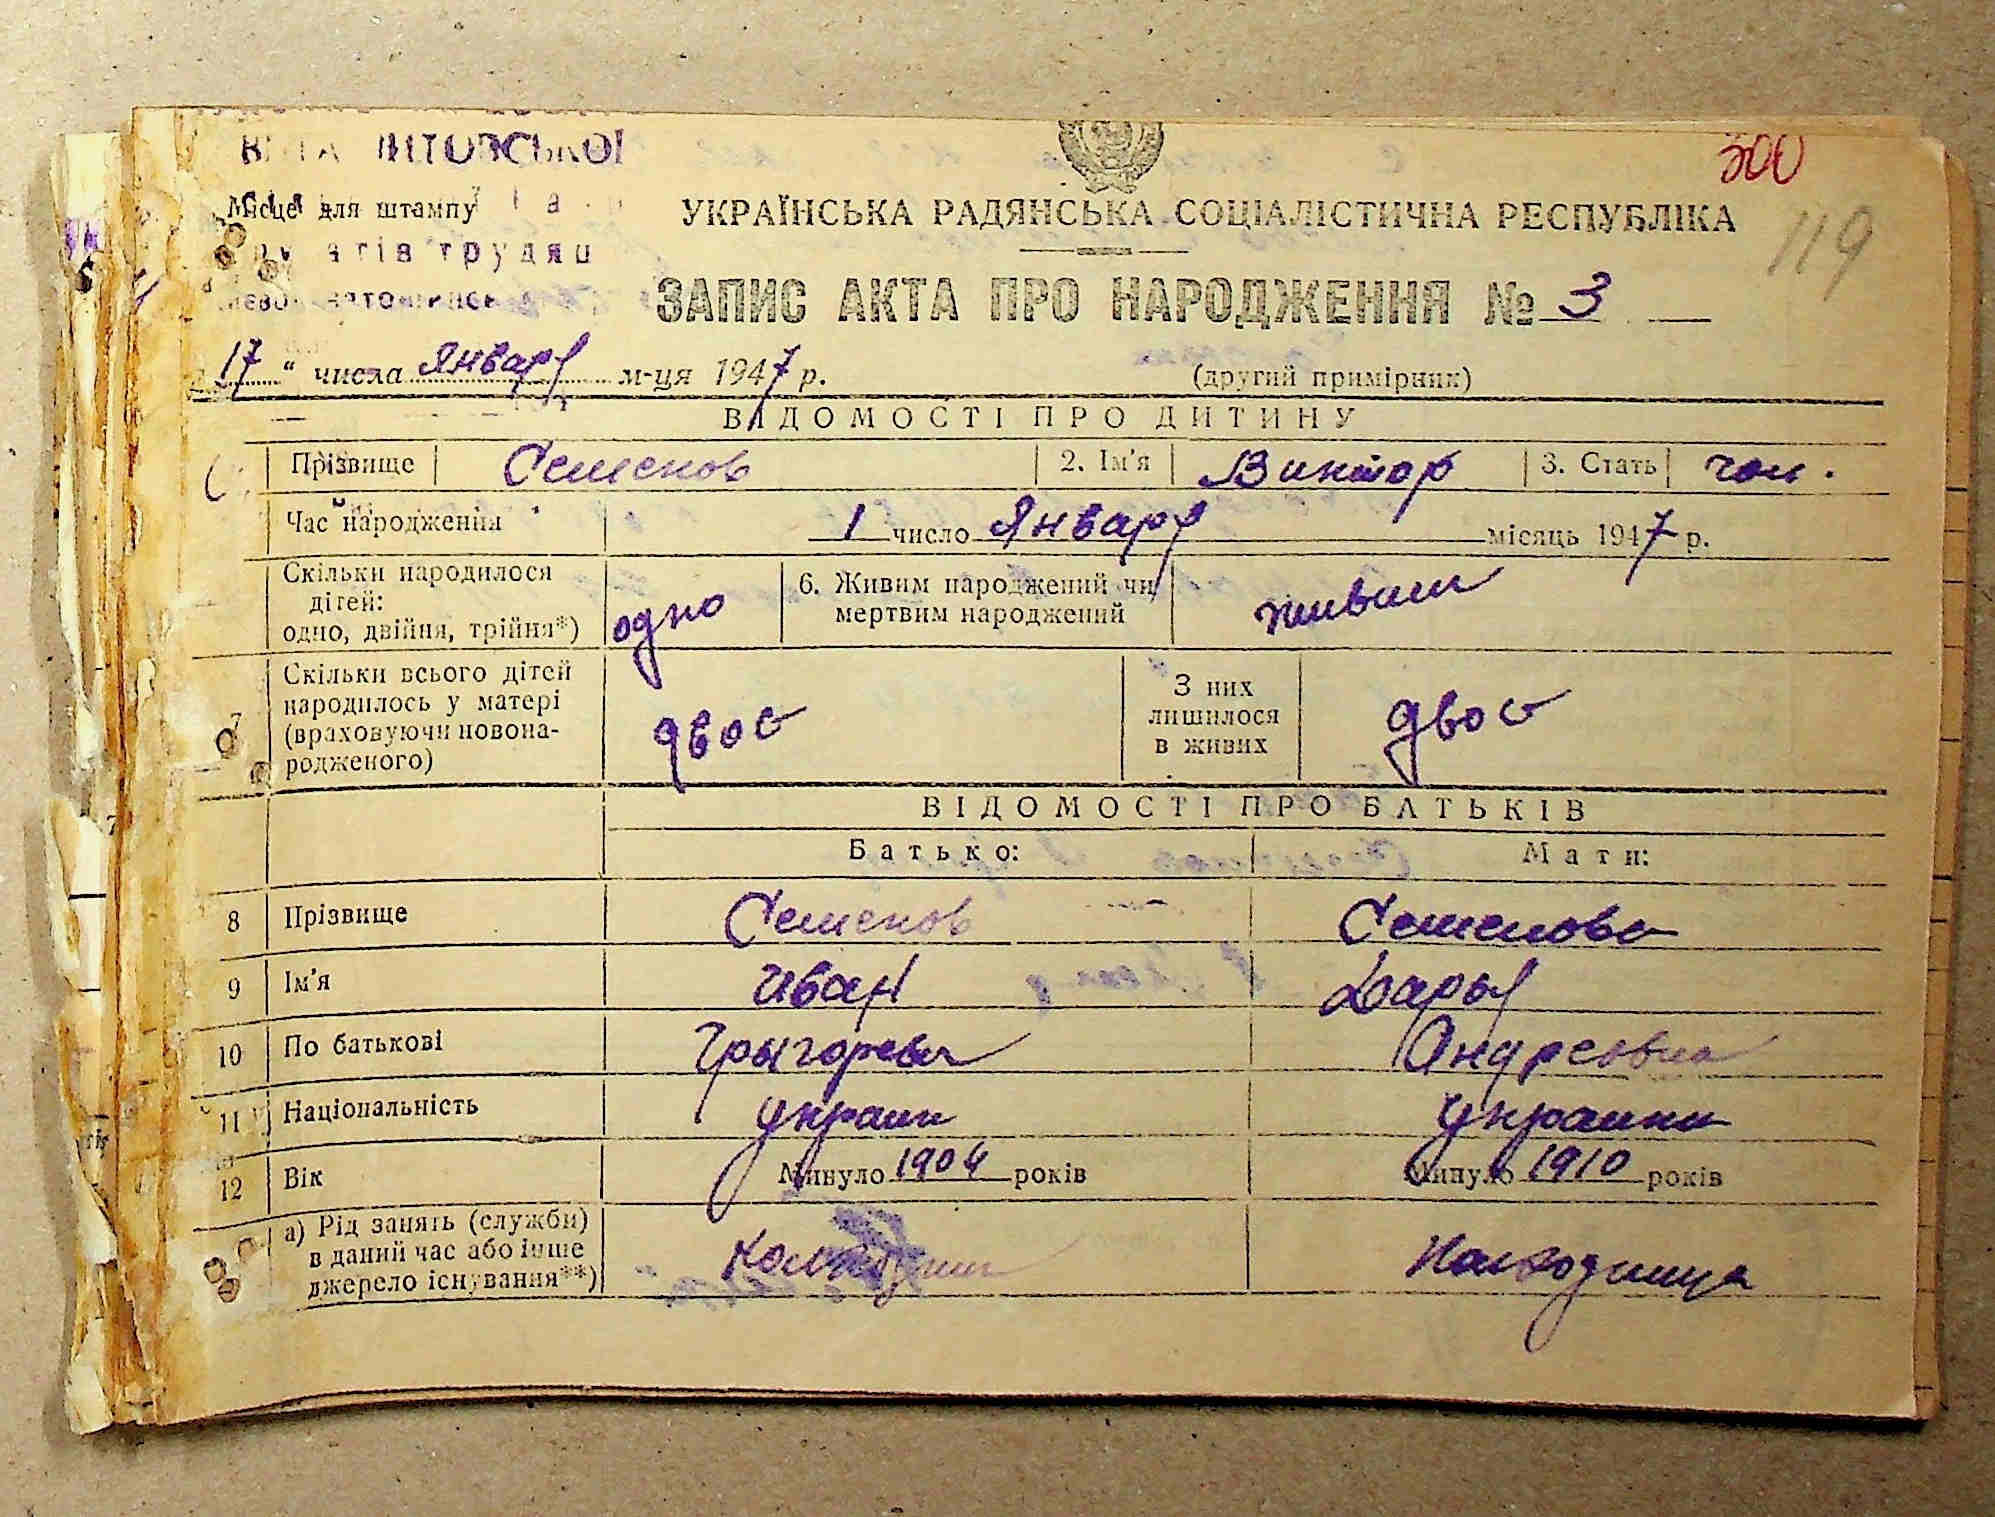 300
Місце для штампу
УКРАЇНСЬКА РАДЯНСЬКА СОЦІАЛІСТИЧНА РЕСПУБЛІКА
119
ЗАПИС АКТА ПРО НАРОДЖЕННЯ № 3
17 " числа Январ м-ця 1947 р.
(другий примірник)
ВІДОМОСТІ ПРО ДИТИНУ
Прізвище Семенов 2. Ім'я Виктор 3. Стать чол.
Час народження 1 число Январ місяць 1947 р.
Скільки народилося дітей: одно, двійня, трійня*) одно 6. Живим народжений чи мертвим народжений живим
7 Скільки всього дітей народилось у матері (враховуючи новонародженого) двоє З них лишилося в живих двоє
ВІДОМОСТІ ПРО БАТЬКІВ
Батько: Мати:
8 Прізвище Семенов Семенова
9 Ім'я Иван Дарья
10 По батькові Грыгоревич Андреевна
11 Національність украин украинка
12 Вік Минуло 1904 років Минуло 1910 років
а) Рід занять (служби) в даний час або інше джерело існування**) Колгоспник Колгоспниця